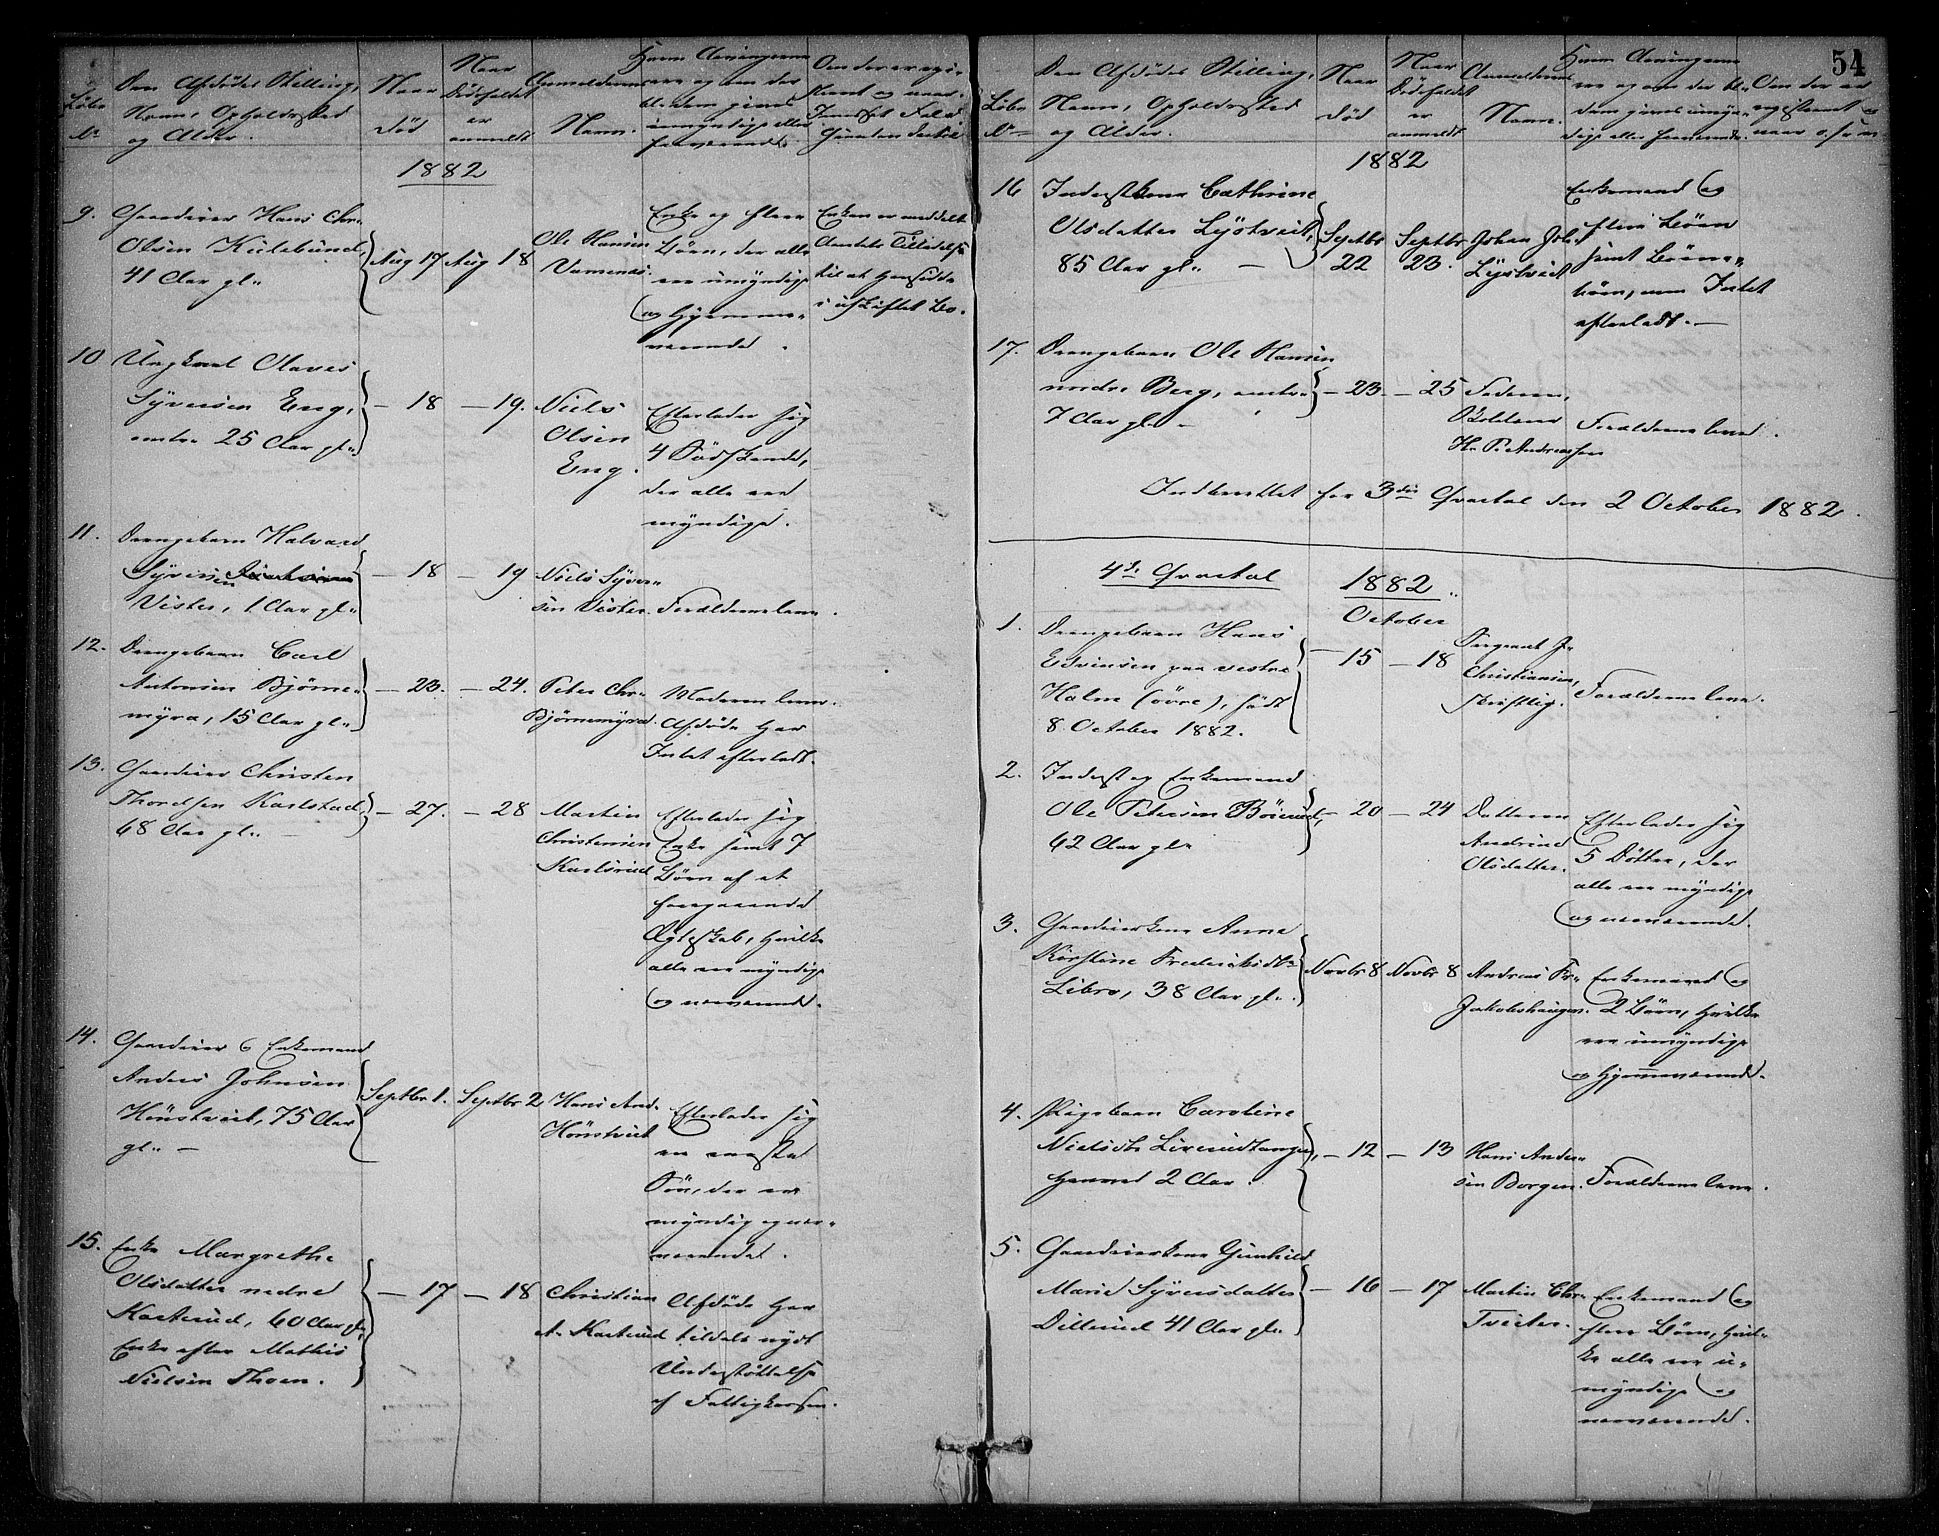 54
Løbe
No
Den Afdødes Stilling,
Navn, Opholdssted
og Alder.
Naar
død
Naar
Dødsfaldet
er
anmeldt
Anmelderens
Navn.
Hvem Arvingerne
ere og om der
blandt dem gives
umyndige eller
fraværende
Om der er
1882
9.
Gaardeier Hans Chr.
Olsen Kulebund,
41 Aar gl.
Aug 17
Aug 18
Ole Hansen
Vamenæs.
Enke og flere
Børn, der alle
ere umyndige
og hjemme-
værende.
Enken er meddelt
Amtets Tilladelse
til at hensidde
i uskiftet Bo.
10
Ungkarl Olaves
Syversen Eng,
omtr. 25 Aar gl.
— 18
— 19.
Niels
Olsen
Eng.
Efterlader sig
4 Sødskende,
der alle ere
myndige.
11.
Drengebarn Halvard
Syversen
Vister, 1 Aar gl.
— 18
— 19
Niels Syver-
sen Vister.
Forældrene leve.
12.
Drengebarn Carl
Antonsen Bjørne-
myra, 15 Aar gl.
— 23.
— 24.
Peter Chr.
Bjørnemyra.
Moderen lever.
Afdøde har
Intet efterladt.
13.
Gaardeier Christen
Thordsen Karlstad,
68 Aar gl. —
— 27.
— 28
Martin
Christensen
Karlsrud
Efterlader sig
Enke samt 7
Børn af et
foregaaende
Ægteskab, hvilke
alle ere myndige
og nærværende.
14.
Gaardeier & Enkemand
Anders Johnsen
Hønstveit, 75 Aar
gl. —
Septbr 1.
Septbr 2
Hans And.
Hønstveit
Efterlader sig
en eneste
Søn, der er
myndig og nær-
værende.
15.
Enke Margrethe
Olsdatter nedre
Kasterud, 60 Aar gl.
Enke efter Mathis
Nielsen Thoen.
— 17
— 18
Christian
A. Kasterud
Afdøde har
tildels nydt
Understøttelse
af Fattigkassen.
Løbe
No
Den Afdødes Stilling,
Navn, Opholdssted
og Alder.
Naar
død
Naar
Dødsfaldet
er
anmeldt
Anmelderens
Navn.
Hvem Arvingerne
ere og om der bl.
dem gives umyn-
dige eller fraværende.
Om der er
registreret og
naar o.s.v.
1882
16
Inderstkone Cathrine
Olsdatter Lystveit,
85 Aar gl. —
Septbr
22
Septbr
23.
Johan Joh.
Lystveit
Enkemand og
flere Børn
samt Børne-
børn, men Intet
efterladt. —
17.
Drengebarn Ole Hansen
nedre Berg, omtr.
7 Aar gl. —
— 23.
— 25
Faderen,
H. P. Andreassen
Forældrene leve.
Indberettet for 3die Qvartal den 2 October 1882.
4de Qvartal
1882
October
1.
Drengebarn Hans
Edvinsen paa vestre
Holm (øvre), født
8 October 1882.
— 15
— 18
Sergeant J.
Christiansen,
skriftlig.
Forældrene leve.
2.
Inderst og Enkemand
Ole Petersen Bøierud,
62 Aar gl.
— 20
— 24
Datteren
Andrine
Olsdatter.
Efterlader sig
5 Døtre, der
alle ere myndige
og nærværende.
3.
Gaardeierkone Anne
Kirstine Frederiksdtr
Libro, 38 Aar gl.
Novbr 8
Novbr 8
Andreas Fr.
Jakobshaugen.
Enkemand og
2 Børn, hvilke
ere umyndige
og hjemmeværende.
4.
Pigebarn Caroline
Nielsdtr Liverudtangen,
henved 2 Aar.
— 12
— 13
Hans Ander-
sen Borgen.
Forældrene leve.
5.
Gaardeierkone Gunhild
Marie Syversdatter
Dillerud 41 Aar gl.
— 16
— 17
Martin Chr.
Tveter.
Enkemand og
flere Børn, hvil-
ke alle ere u-
myndige og
nærværende.